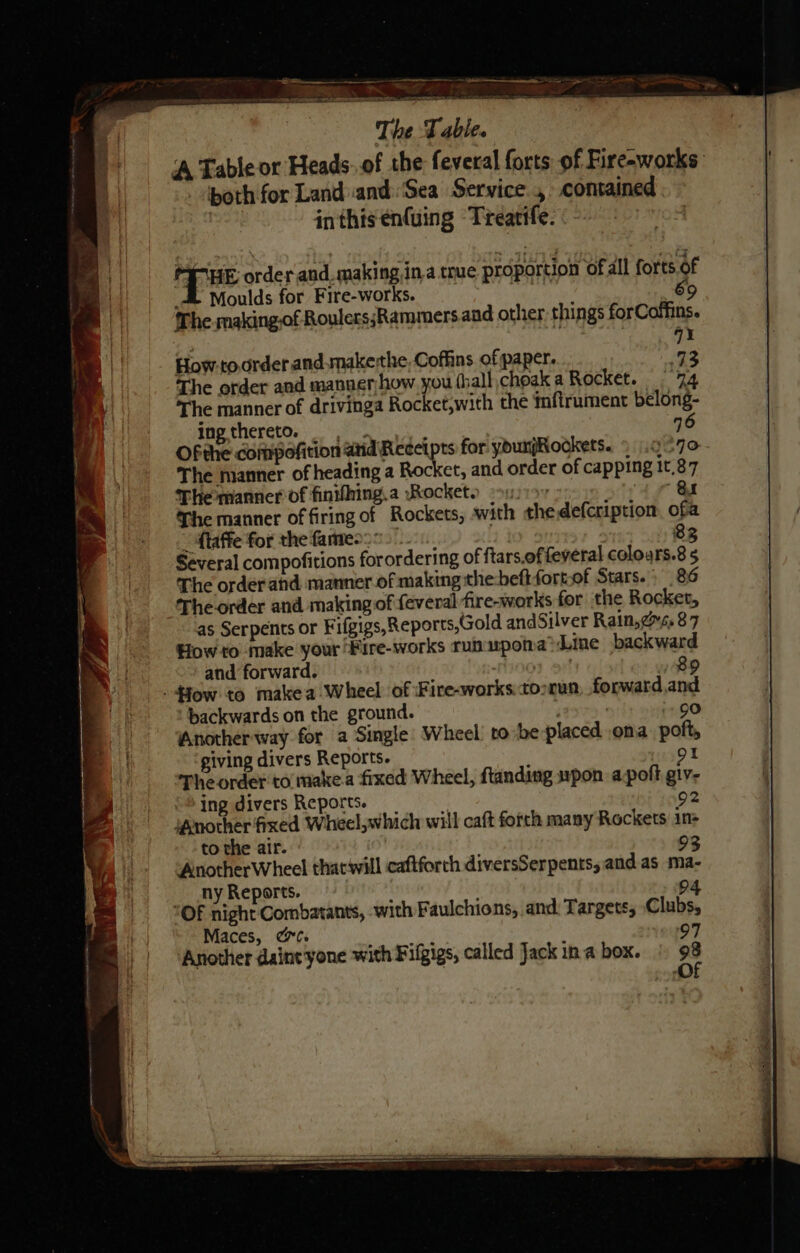 The Table.
A Table or Heads of the ſeveral ſorts of Fire-works
both for Land and Sea Service, contained
in this enſuing Treatiſe.
THE order and making in a true proportion of all ſorts of
Moulds for Fire-works. 69
The making of Roulers, Rammers and other things for Coffins.
71
How to order and make the Coffins of paper. 73
The order and manner how you ſhall choak a Rocket. 74
The manner of driving a Rocket, with the inſtrument belong-
ing thereto. 76
Of the compoſition and Receipts for your Rockets. 70
The manner of heading a Rocket, and order of capping it, 87
The manner of finiſhing a Rocket. 81
The manner of firing of Rockets, with the deſcription of a
ſtaffe for the ſame. 83
Several compoſitions for ordering of ſtars of ſeveral colours. 85
The order and manner of making the beſt ſort of Stars. 86
The order and making of ſeveral fire-works for the Rocket,
as Serpents or Fiſgigs, Reports, Gold and Silver Rain, &c. 87
How to make your Fire-works run upon a Line backward
and forward. 89
How to make a Wheel of Fire-works to run forward and
backwards on the ground. 90
Another way for a Single Wheel to be placed on a poſt,
giving divers Reports. 91
The order to make a fixed Wheel, ſtanding upon a poſt giv-
ing divers Reports. 92
Another fixed Wheel, which will caſt forth many Rockets in-
to the air. 93
Another Wheel that will caſt forth divers Serpents, and as ma-
ny Reports. 94
Of night Combatants, with Faulchions, and Targets, Clubs,
Maces, &c. 97
Another dainty one with Fiſgigs, called Jack in a box. 98
Of